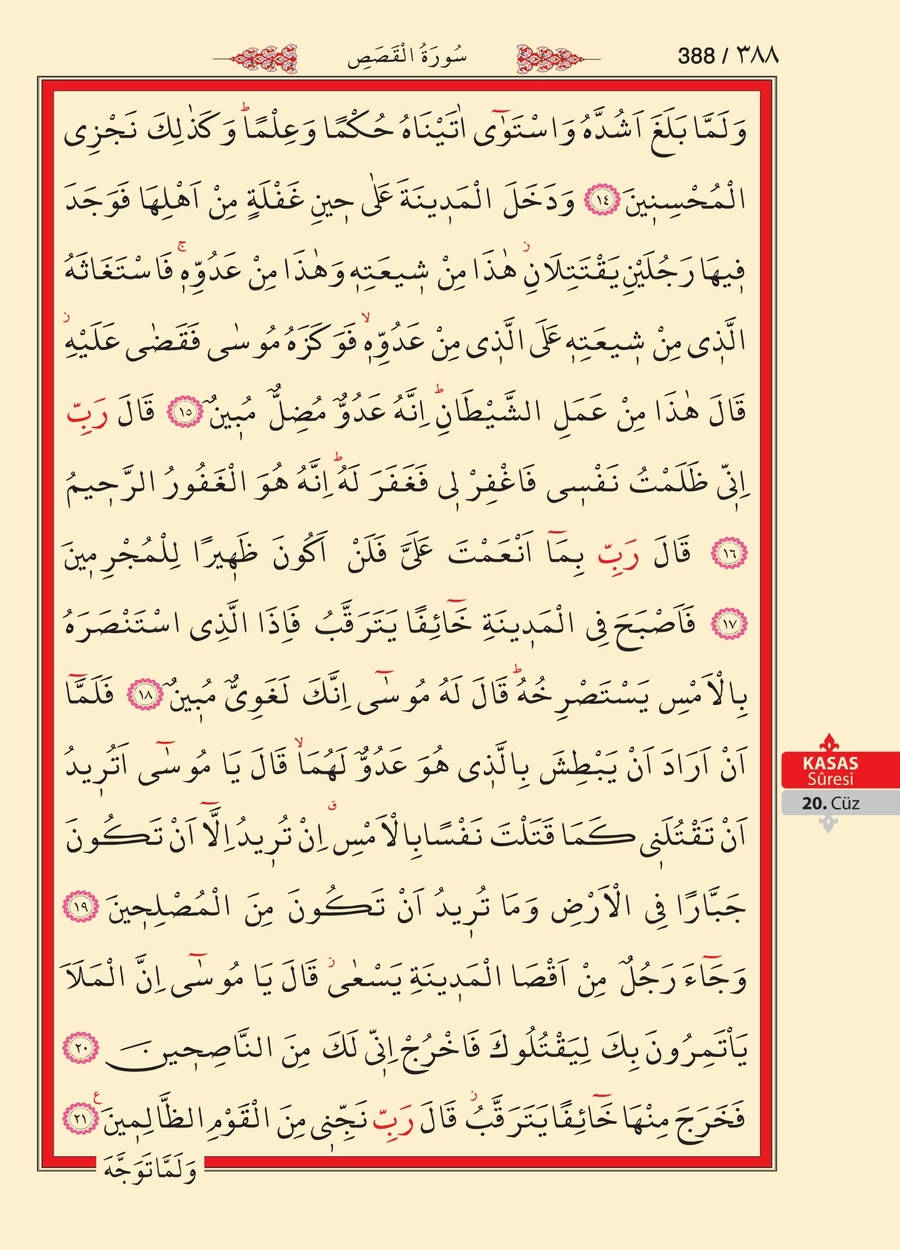 سُورَةُ الْقَصَصِ
388 / ٣٨٨
وَلَمَّا بَلَغَ اَشُدَّهُ وَاسْتَوٰٓى اٰتَيْنَاهُ حُكْمًا وَعِلْمًاۜ وَكَذٰلِكَ نَجْزِى
الْمُحْسِن۪ينَ ﴿١٤﴾ وَدَخَلَ الْمَد۪ينَةَ عَلٰى ح۪ينِ غَفْلَةٍ مِنْ اَهْلِهَا فَوَجَدَ
ف۪يهَا رَجُلَيْنِ يَقْتَتِلَانِۘ هٰذَا مِنْ ش۪يعَتِه۪ وَهٰذَا مِنْ عَدُوِّه۪ۚ فَاسْتَغَاثَهُ
الَّذ۪ى مِنْ ش۪يعَتِه۪ عَلَى الَّذ۪ى مِنْ عَدُوِّه۪ۙ فَوَكَزَهُ مُوسٰى فَقَضٰى عَلَيْهِۘ
قَالَ هٰذَا مِنْ عَمَلِ الشَّيْطَانِۜ اِنَّهُ عَدُوٌّ مُضِلٌّ مُب۪ينٌ ﴿١٥﴾ قَالَ رَبِّ
اِنّ۪ى ظَلَمْتُ نَفْس۪ى فَاغْفِرْ ل۪ى فَغَفَرَ لَهُۜ اِنَّهُ هُوَ الْغَفُورُ الرَّح۪يمُ
﴿١٦﴾ قَالَ رَبِّ بِمَٓا اَنْعَمْتَ عَلَىَّ فَلَنْ اَكُونَ ظَه۪يرًا لِلْمُجْرِم۪ينَ
﴿١٧﴾ فَاَصْبَحَ فِى الْمَد۪ينَةِ خَٓائِفًا يَتَرَقَّبُ فَاِذَا الَّذِى اسْتَنْصَرَهُ
بِالْاَمْسِ يَسْتَصْرِخُهُۜ قَالَ لَهُ مُوسٰٓى اِنَّكَ لَغَوِىٌّ مُب۪ينٌ ﴿١٨﴾ فَلَمَّٓا
اَنْ اَرَادَ اَنْ يَبْطِشَ بِالَّذ۪ى هُوَ عَدُوٌّ لَهُمَاۙ قَالَ يَا مُوسٰٓى اَتُر۪يدُ
اَنْ تَقْتُلَن۪ى كَمَا قَتَلْتَ نَفْسًا بِالْاَمْسِۗ اِنْ تُر۪يدُ اِلَّٓا اَنْ تَكُونَ
جَبَّارًا فِى الْاَرْضِ وَمَا تُر۪يدُ اَنْ تَكُونَ مِنَ الْمُصْلِح۪ينَ ﴿١٩﴾
وَجَٓاءَ رَجُلٌ مِنْ اَقْصَا الْمَد۪ينَةِ يَسْعٰىۘ قَالَ يَا مُوسٰٓى اِنَّ الْمَلَاَ
يَاْتَمِرُونَ بِكَ لِيَقْتُلُوكَ فَاخْرُجْ اِنّ۪ى لَكَ مِنَ النَّاصِح۪ينَ ﴿٢٠﴾
فَخَرَجَ مِنْهَا خَٓائِفًا يَتَرَقَّبُۘ قَالَ رَبِّ نَجِّن۪ى مِنَ الْقَوْمِ الظَّالِم۪ينَ ع ﴿٢١﴾
وَلَمَّا تَوَجَّهَ
KASAS
Sûresi
20. Cüz